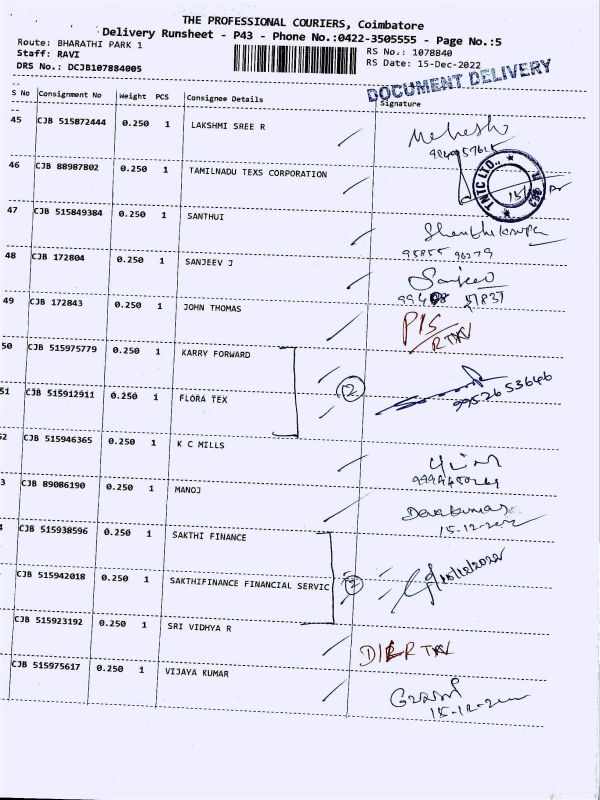 THE PROFESSIONAL COURIERS, Coimbatore
Delivery Runsheet - P43 - Phone No.:0422-3505555 - Page No.:5
Route: BHARATHI PARK 1 RS No.: 1078840
Staff: RAVI RS Date: 15-Dec-2022
DRS No.: DCJB107884005
DOCUMENT DELIVERY
S No Consignment No Weight PCS Consignee Details Signature
45 CJB 515872444 0.250 1 LAKSHMI SREE R Mahesh
46 CJB 88987802 0.250 1 TAMILNADU TEXS CORPORATION TNTC LTD.,
47 CJB 515849384 0.250 1 SANTHUI
95855 96279
48 CJB 172804 0.250 1 SANJEEV J Sanjeev
99408 51837
49 CJB 172843 0.250 1 JOHN THOMAS P/S
RTN
50 CJB 515975779 0.250 1 KARRY FORWARD
2 99526 53646
51 CJB 515912911 0.250 1 FLORA TEX
52 CJB 515946365 0.250 1 K C MILLS
3 CJB 89086190 0.250 1 MANOJ Devakumar
15-12-2022
CJB 515938596 0.250 1 SAKTHI FINANCE
CJB 515942018 0.250 1 SAKTHIFINANCE FINANCIAL SERVIC 2 15/12/2022
CJB 515923192 0.250 1 SRI VIDHYA R D/L RTN
CJB 515975617 0.250 1 VIJAYA KUMAR
15-12-2022